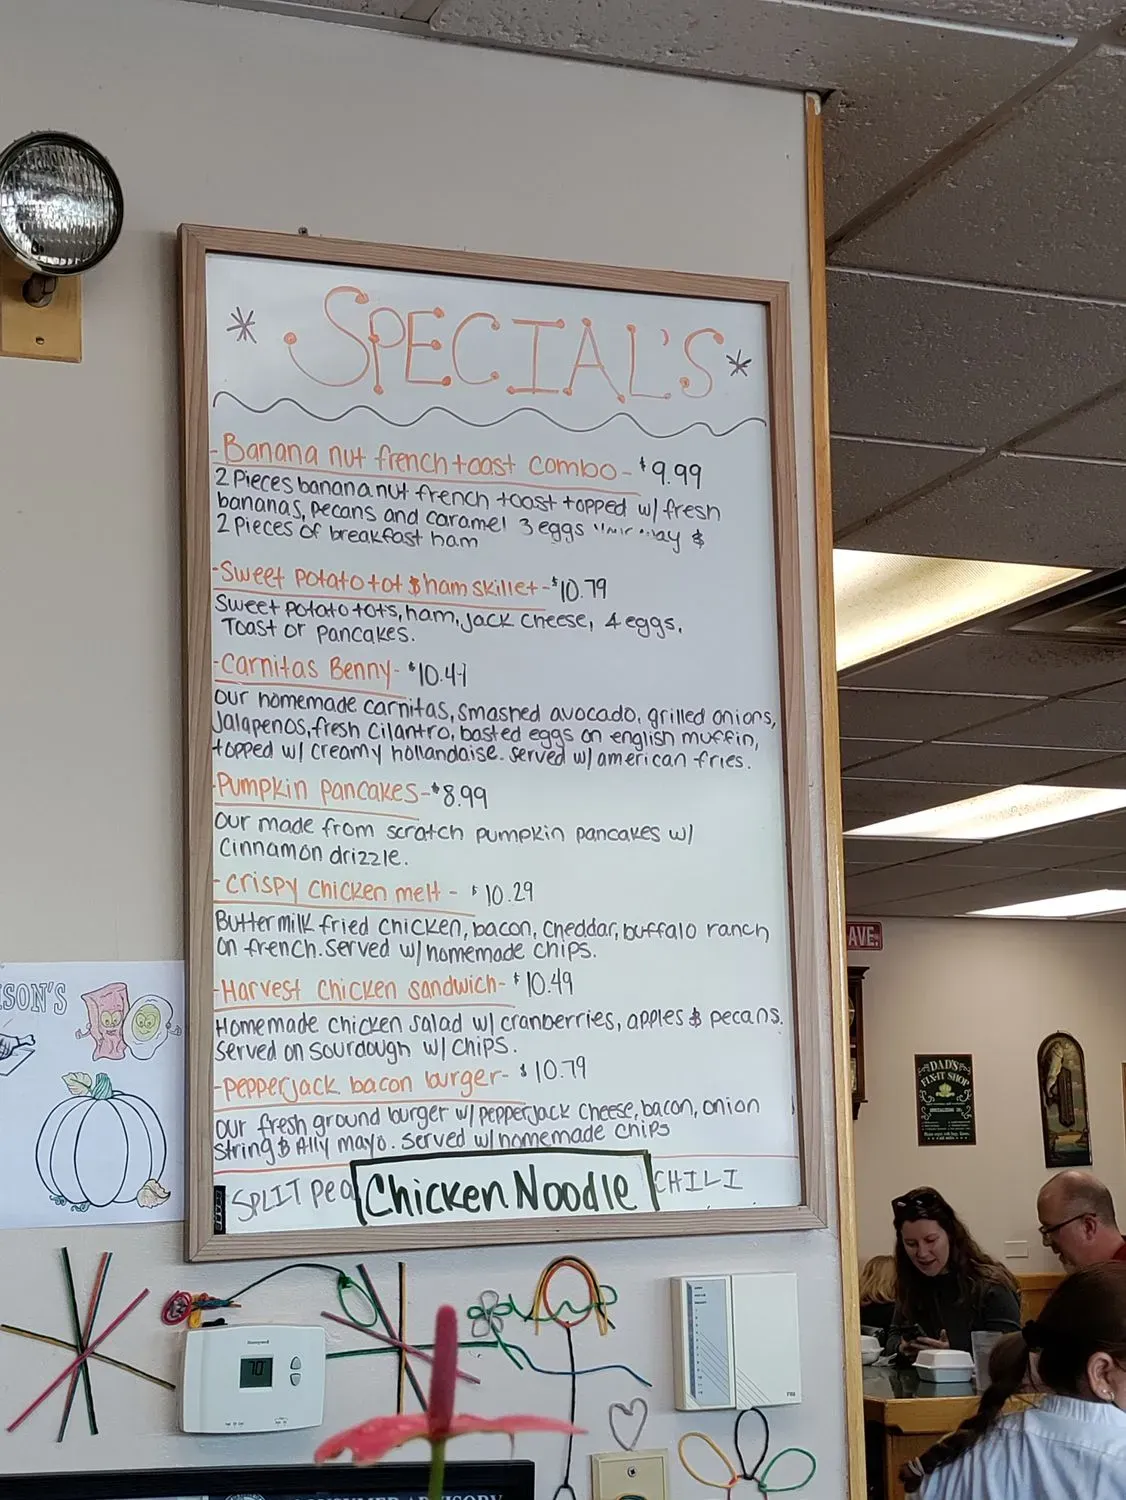 * SPECIAL'S *
- Banana nut french toast combo - $9.99
2 Pieces banana nut french toast topped w/ fresh
bananas, pecans and caramel 3 eggs &
2 Pieces of breakfast ham
- Sweet potato tot & ham skillet - $10.79
Sweet potato tots, ham, jack cheese, 4 eggs,
Toast or pancakes.
- Carnitas Benny - $10.49
Our homemade carnitas, smashed avocado, grilled onions,
Jalapenos, fresh cilantro, basted eggs on english muffin,
topped w/ creamy hollandaise. served w/ american fries.
- Pumpkin pancakes - $8.99
Our made from scratch pumpkin pancakes w/
Cinnamon drizzle.
- crispy chicken melt - $10.29
Buttermilk fried chicken, bacon, cheddar, buffalo ranch
on french. served w/ homemade chips.
- Harvest chicken sandwich - $10.49
Homemade chicken salad w/ cranberries, apples & pecans.
Served on sourdough w/ chips.
- pepperjack bacon burger - $10.79
Our fresh ground burger w/ pepperjack cheese, bacon, onion
string & Ally mayo. served w/ homemade chips
SPLIT Pea Chicken Noodle CHILI
SON'S
AVE.
DAD'S
FIX-IT SHOP
Honeywell
70
CONSUMER ADVISORY